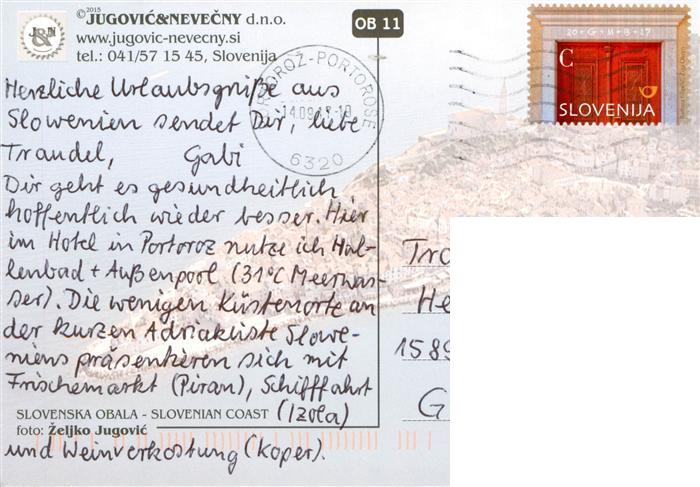 ©2015 JUGOVIĆ&NEVEČNY d.n.o.
www.jugovic-nevecny.si
tel.: 041/57 15 45, Slovenija
OB 11
20+G+M+B+17
C
SLOVENIJA
PORTOROŽ-PORTOROSE
6320
Herzliche Urlaubsgrüße aus
Slowenien sendet Dir, liebe
Traudel, Gabi
Dir geht es gesundheitlich
hoffentlich wieder besser. Hier
im Hotel in Portoroz nutze ich Hal-
lenbad + Außenpool (31°C Meerwas-
ser). Die wenigen Küstenorte an
der kurzen Adriaküste Slowe-
niens präsentieren sich mit
Frischemarkt (Piran), Schifffahrt
(Izola)
und Weinverkostung (Koper).
SLOVENSKA OBALA - SLOVENIAN COAST
foto: Željko Jugović
Tra
He
1589
G